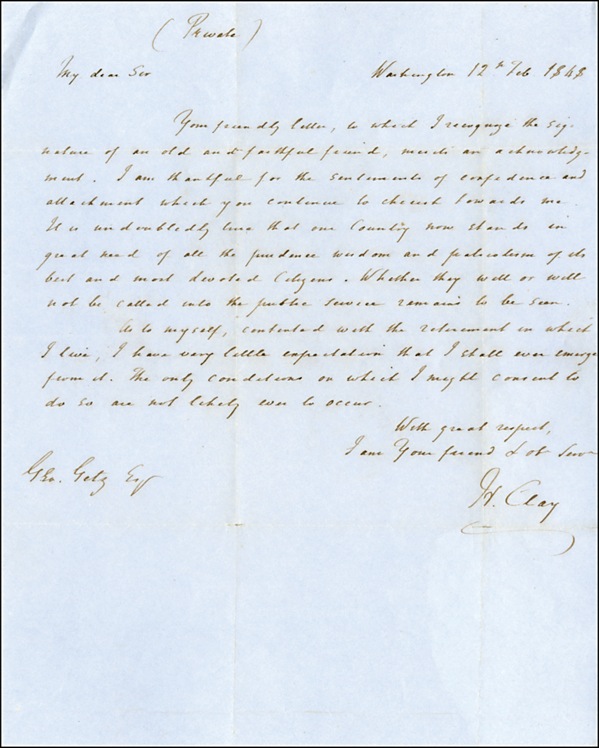 (Private)
My dear Sir Washington 12th Feb 1848
Your friendly letter, to which I recognize the sig-
nature of an old and faithful friend, merits an acknowledg-
ment. I am thankful for the sentiments of confidence and
attachment which you continue to cherish towards me.
It is undoubtedly true that our Country now stands in
great need of all the prudence wisdom and patriotism of its
best and most devoted Citizens. Whether they will or will
not be called into the public service remains to be seen.
As to myself, contented with the retirement in which
I live, I have very little expectation that I shall ever emerge
from it. The only conditions on which I might consent to
do so are not likely ever to occur.
With great respect,
I am Your friend & obt Servt
Geo. Getz Esqr
H. Clay